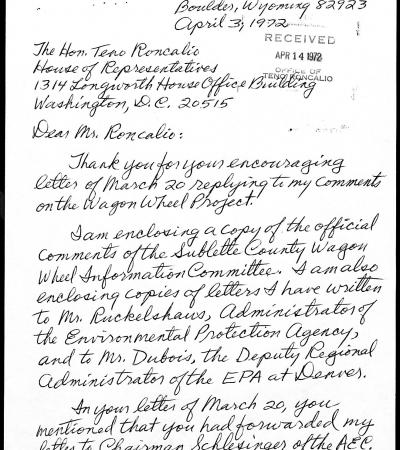 Boulder, Wyoming 82923
April 3, 1972
RECEIVED
APR 14 1972
OFFICE OF
TENO RONCALIO
The Hon. Teno Roncalio
House of Representatives
1314 Longworth House Office Building
Washington, D.C. 20515
Dear Mr. Roncalio:
Thank you for your encouraging
letter of March 20 replying to my comments
on the Wagon Wheel Project.
I am enclosing a copy of the official
comments of the Sublette County Wagon
Wheel Information Committee. I am also
enclosing copies of letters I have written
to Mr. Ruckelshaus, Administrator of
the Environmental Protection Agency,
and to Mr. Dubois, the Deputy Regional
Administrator of the EPA at Denver.
In your letter of March 20, you
mentioned that you had forwarded my
letter to Chairman Schlesinger of the AEC.